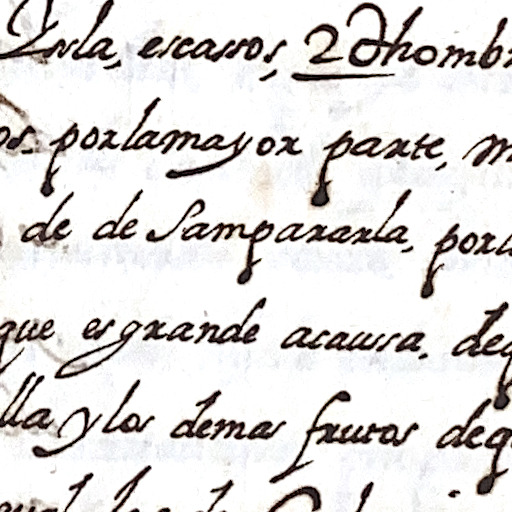 Ysla, escassos, 2 U hombr
os. por la mayor parte, m
de. de Sampararla, por
que es grande acausa, deq
lla y los demas frutos deq